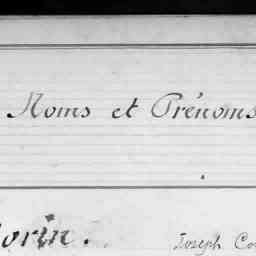 Noms et Prénoms
orin. Joseph Co